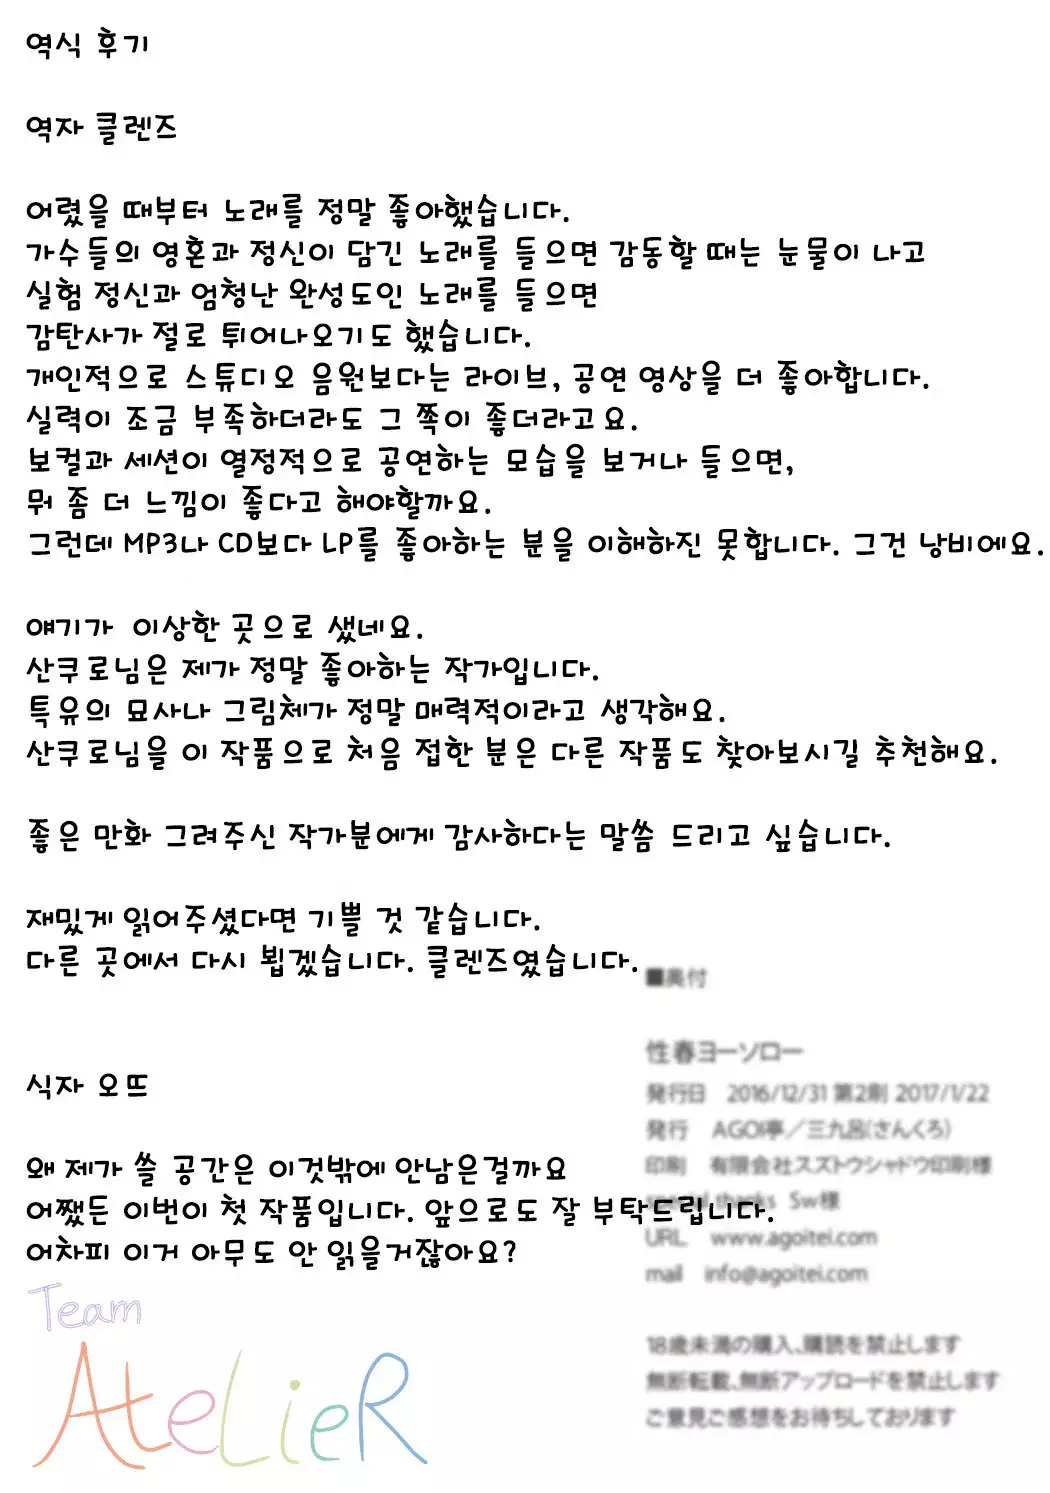 역식 후기
역자 클렌즈
어렸을 때부터 노래를 정말 좋아했습니다.
가수들의 영혼과 정신이 담긴 노래를 들으면 감동할 때는 눈물이 나고
실험 정신과 엄청난 완성도인 노래를 들으면
감탄사가 절로 튀어나오기도 했습니다.
개인적으로 스튜디오 음원보다는 라이브, 공연 영상을 더 좋아합니다.
실력이 조금 부족하더라도 그 쪽이 좋더라고요.
보컬과 세션이 열정적으로 공연하는 모습을 보거나 들으면,
뭐 좀 더 느낌이 좋다고 해야할까요.
그런데 MP3나 CD보다 LP를 좋아하는 분을 이해하진 못합니다. 그건 낭비에요.
얘기가 이상한 곳으로 샜네요.
산쿠로님은 제가 정말 좋아하는 작가입니다.
특유의 묘사나 그림체가 정말 매력적이라고 생각해요.
산쿠로님을 이 작품으로 처음 접한 분은 다른 작품도 찾아보시길 추천해요.
좋은 만화 그려주신 작가분에게 감사하다는 말씀 드리고 싶습니다.
재밌게 읽어주셨다면 기쁠 것 같습니다.
다른 곳에서 다시 뵙겠습니다. 클렌즈였습니다.
식자 오뜨
왜 제가 쓸 공간은 이것밖에 안남은걸까요
어쨌든 이번이 첫 작품입니다. 앞으로도 잘 부탁드립니다.
어차피 이거 아무도 안 읽을거잖아요?
Team
AteLieR
■奥付
性春ヨーソロー
発行日 2016/12/31 第2刷 2017/1/22
発行 AGOI亭／三九呂(さんくろ)
印刷 有限会社スズトウシャドウ印刷様
special thanks Sw様
URL www.agoitei.com
mail info@agoitei.com
18歳未満の購入、購読を禁止します
無断転載、無断アップロードを禁止します
ご意見ご感想をお待ちしております